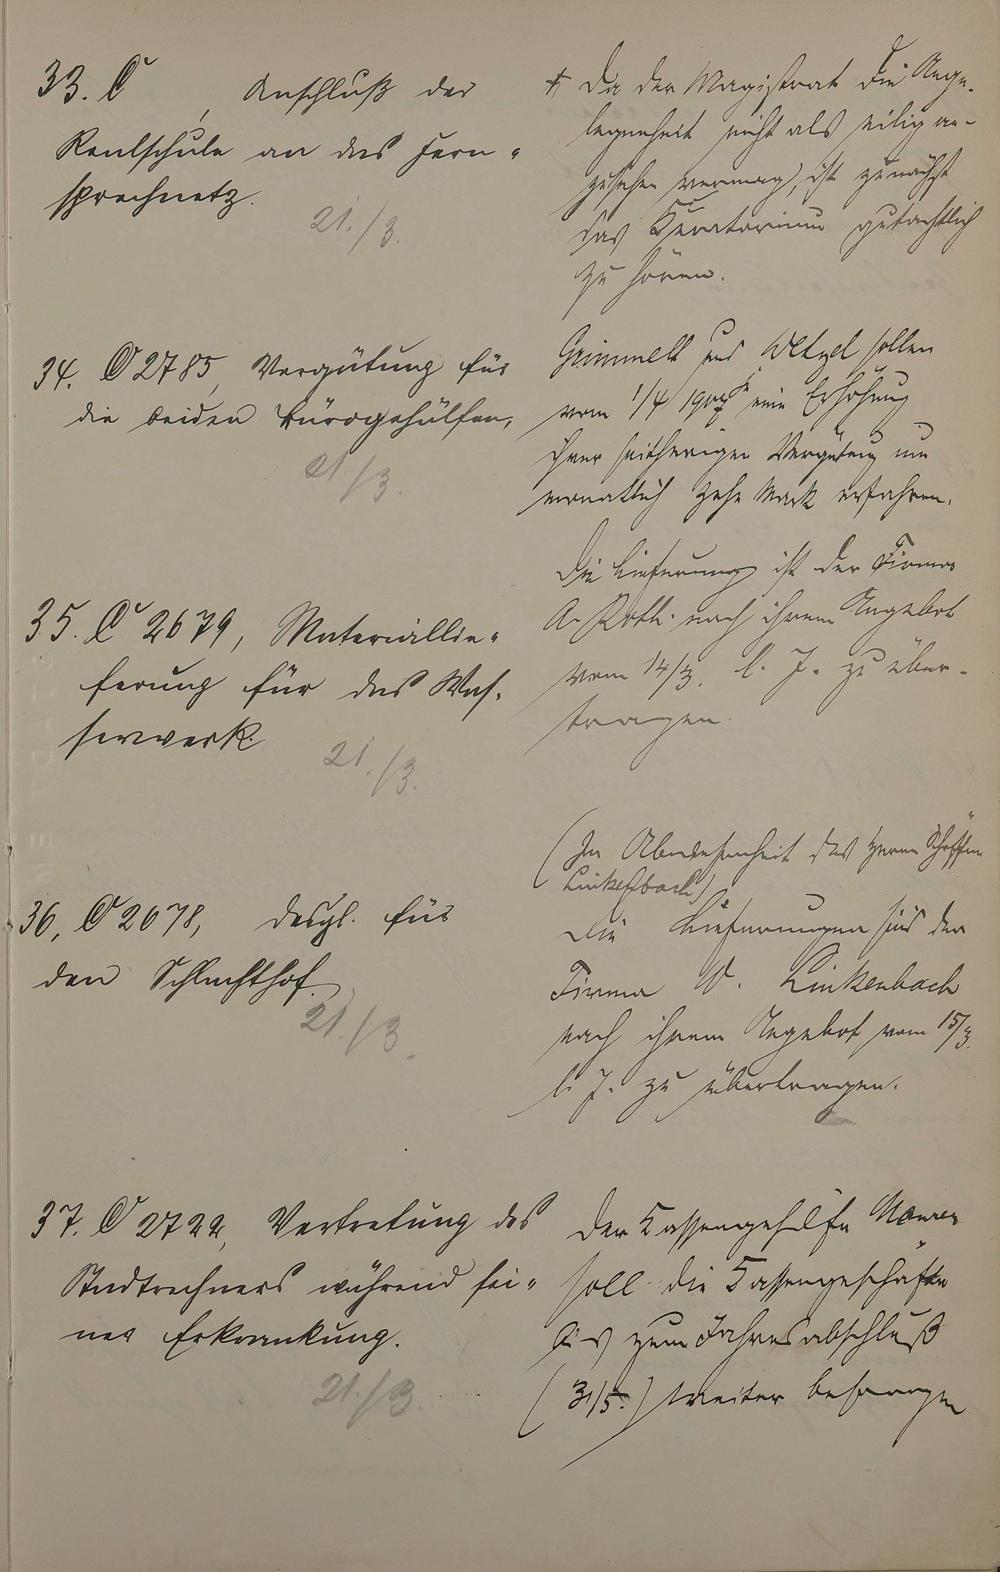 33. C , Anschluß der
Realschule an das Fern-
sprechnetz.
21./3.
Da der Magistrat die Ange-
legenheit nicht als eilig an-
zusehen vermag, ist zunächst
das Kuratorium gutachtlich
zu hören.
34. C 2785, Vergütung für
die beiden Bürogehülfen,
21/3.
Grimmell und Wetzel sollen
vom 1/4 1907 eine Erhöhung
ihrer seitherigen Vergütung um
monatlich zehn Mark erfahren.
35. C 2679, Materiallie-
ferung für das Was-
serwerk.
21./3.
Die Lieferung ist der Firma
A. Roth nach ihrem Angebot
vom 14/3. l. J. zu über-
tragen.
36, C 2678, desgl. für
den Schlachthof.
21./3.
(In Abwesenheit des Herrn Schöffen
Linkenbach)
Die Lieferungen sind der
Firma W. Linkenbach
nach ihrem Angebot vom 15/3.
l. J. zu übertragen.
37. C 2722, Vertretung des
Stadtrechners während sei-
ner Erkrankung.
21./3.
Der Kassengehilfe
soll die Kassengeschäfte
bis zum Jahresabschluß
(31/5.) weiter besorgen